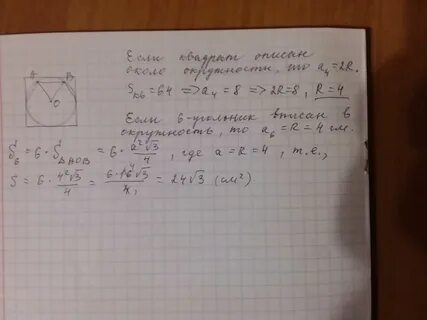 A B
O
Если квадрат описан
около окружности, то a₄=2R.
Sкв=64 => a₄=8 => 2R=8, R=4
Если 6-угольник вписан в
окружность, то a₆=R=4 см.
S₆=6·S△AOB=6·a²√3/4, где a=R=4, т.е.,
S=6·4²√3/4=6·16√3/4=24√3 (см²)